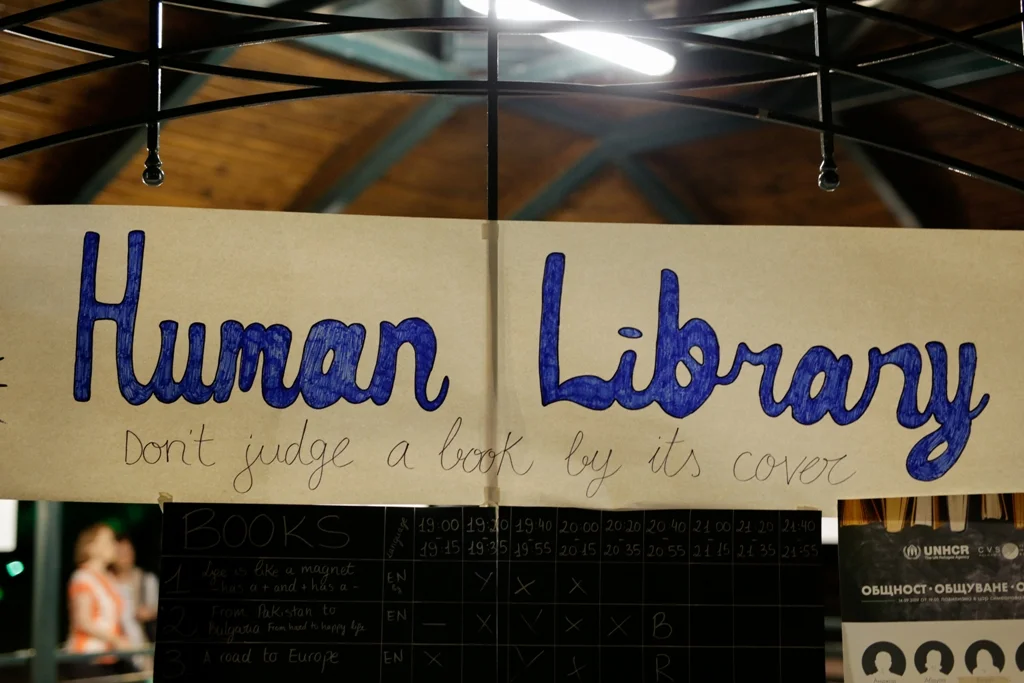 Human Library
Don't judge a book by its cover
BOOKS
language
19:00 - 19:15
19:20 - 19:35
19:40 - 19:55
20:00 - 20:15
20:20 - 20:35
20:40 - 20:55
21:00 - 21:15
21:20 - 21:35
21:40 - 21:55
1 Life is like a magnet
- has a + and + has a -
EN
Y X X
2 From Pakistan to
Bulgaria From hard to happy life.
EN
— X V X X B
3 A road to Europe
EN
X V X R
UNHCR
The UN Refugee Agency
CVS
ОБЩНОСТ · ОБЩУВАНЕ ·